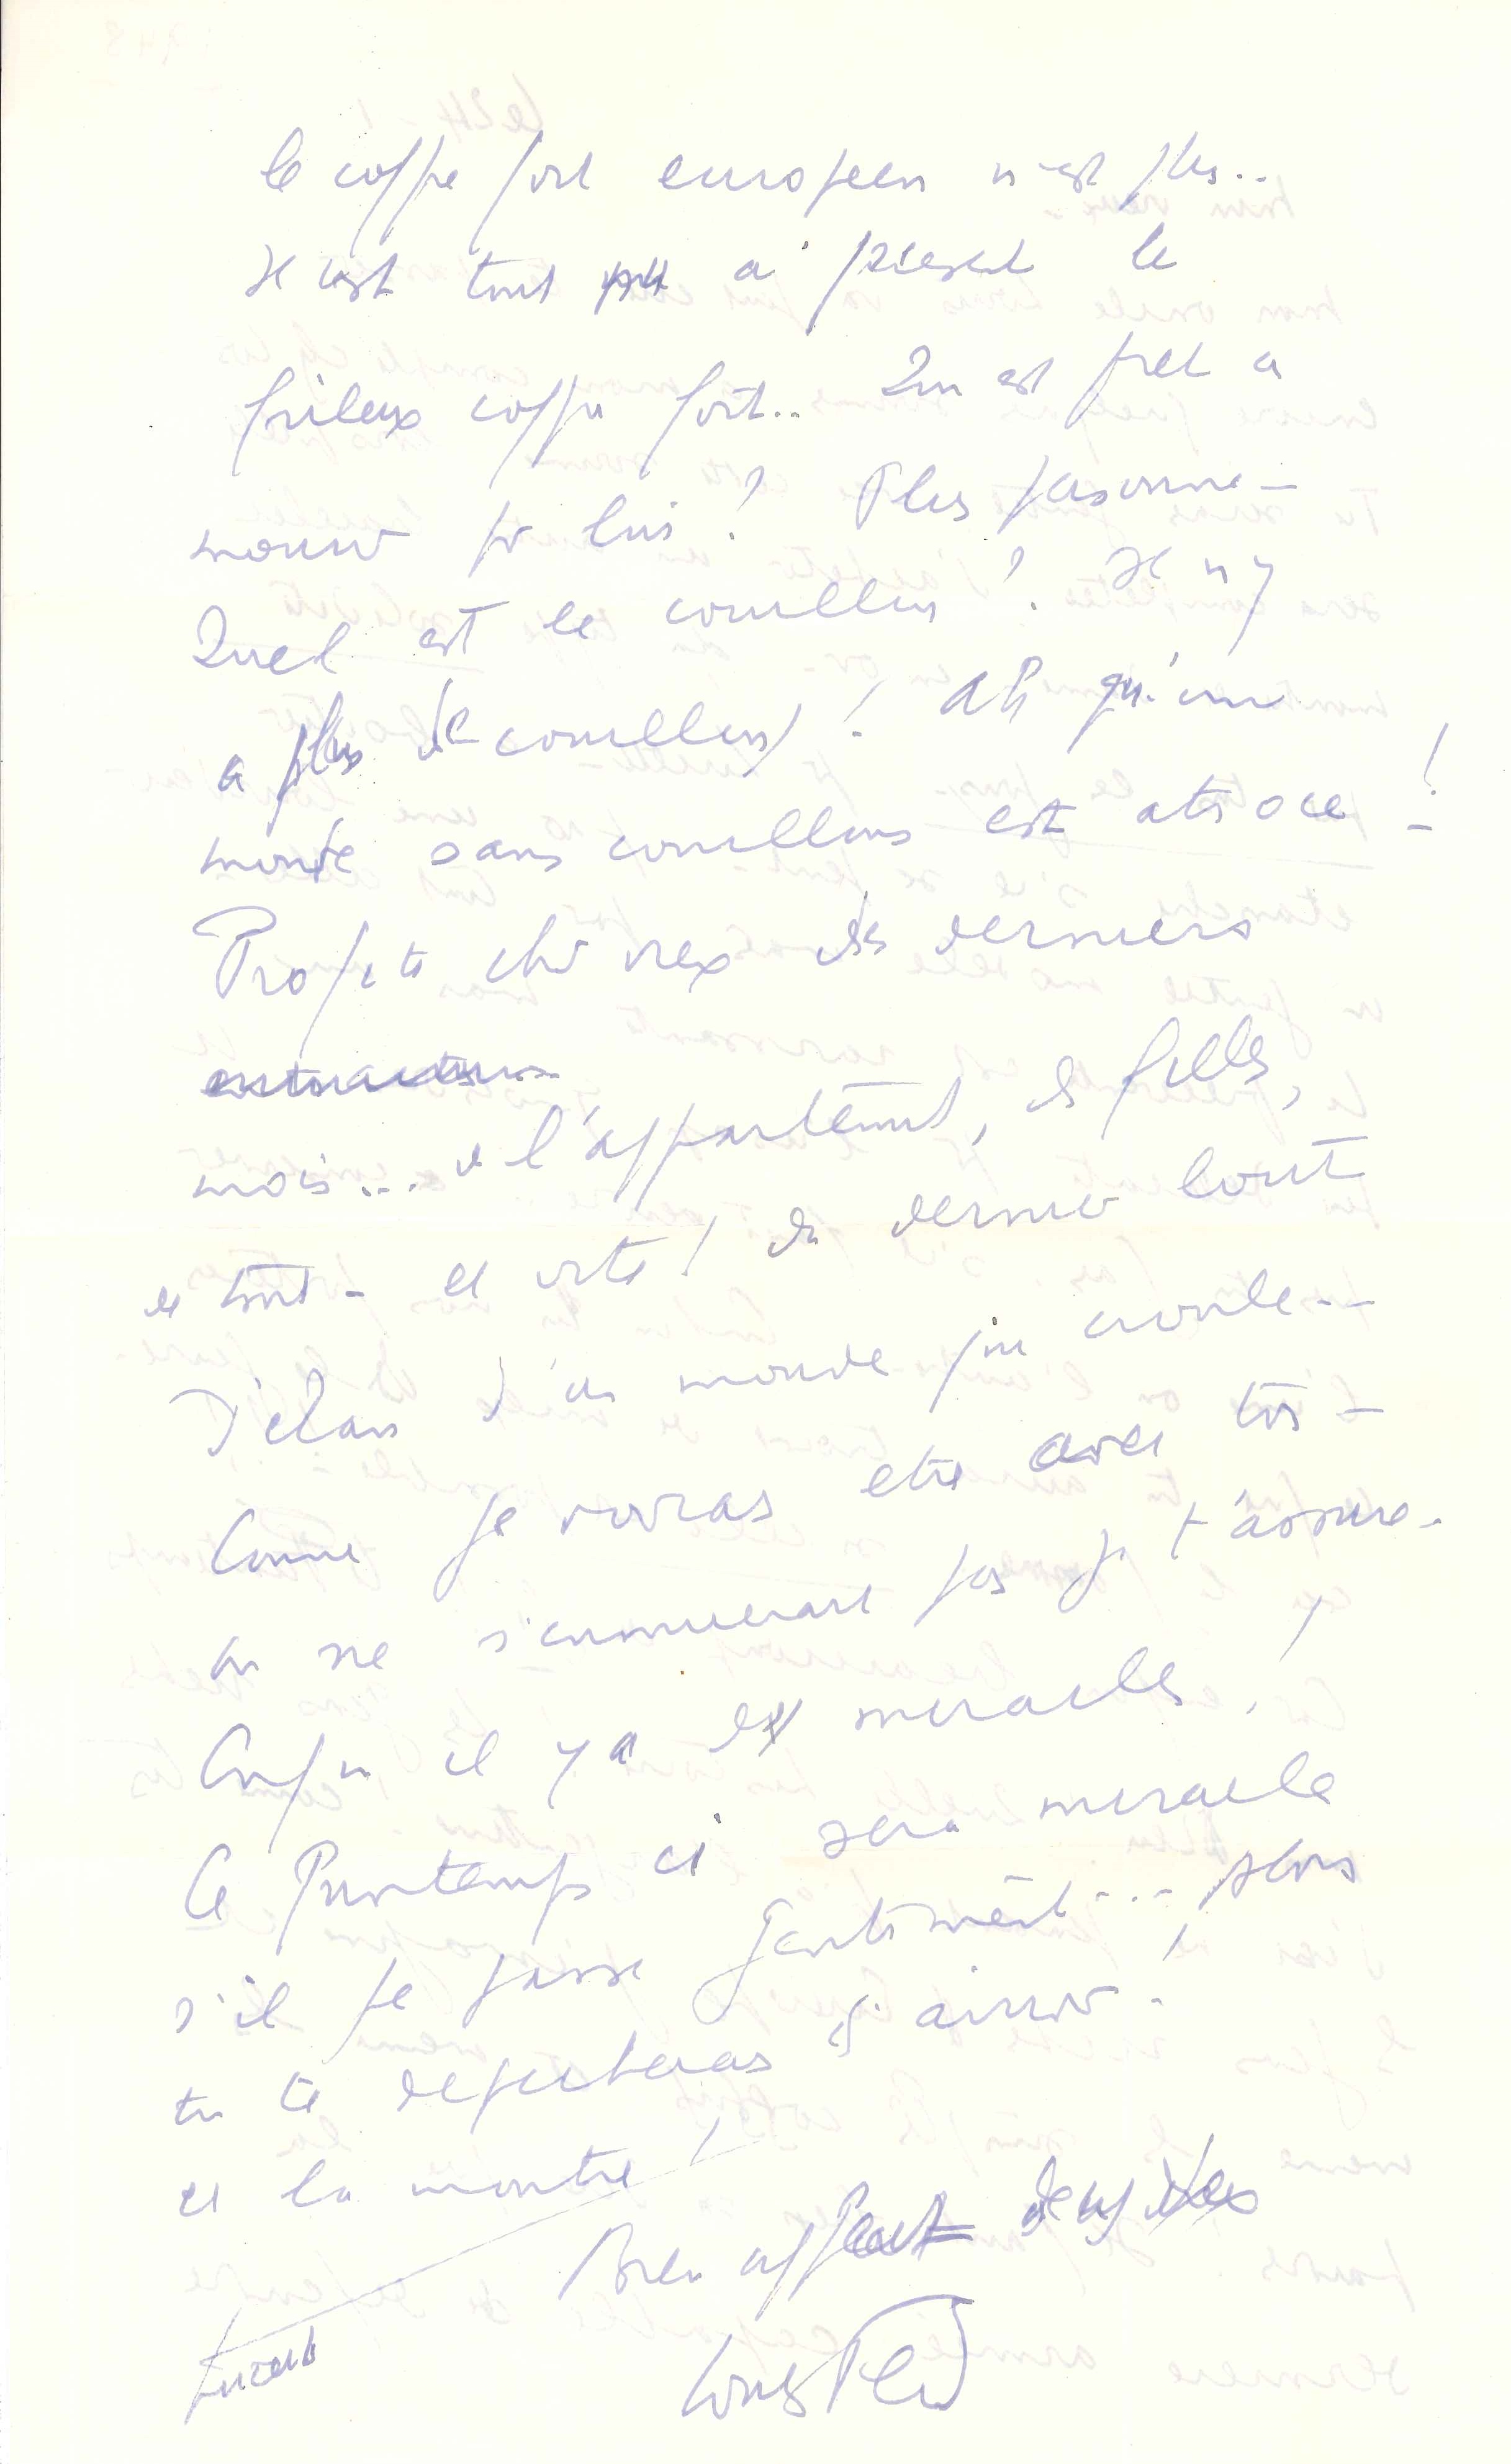 le coffre fort europeen n'est plus..
Il est tout à present le
frileux coffre fort.. Qui est pret a
mourir pr lui ? Plus personne -
Quel est le couillon ? Il n'y
a plus de couillons ! Ah qu'un
monde sans couillons est atroce !
Profite cher vieux des derniers
mois... de l'appartemnt, des filles,
de tout - et vite ! du dernier bout
d'élan d'un monde qui croule --
Comme je vivrais etre avec toi -
on ne s'ennuierait pas je t'assure -
Enfin il y a des miracles !
Ce Printemps ci sera miracle
s'il se passe gentiment... Alors
tu te depecheras d'arriver !
et la montre !
Bien affect
Louis Ferd